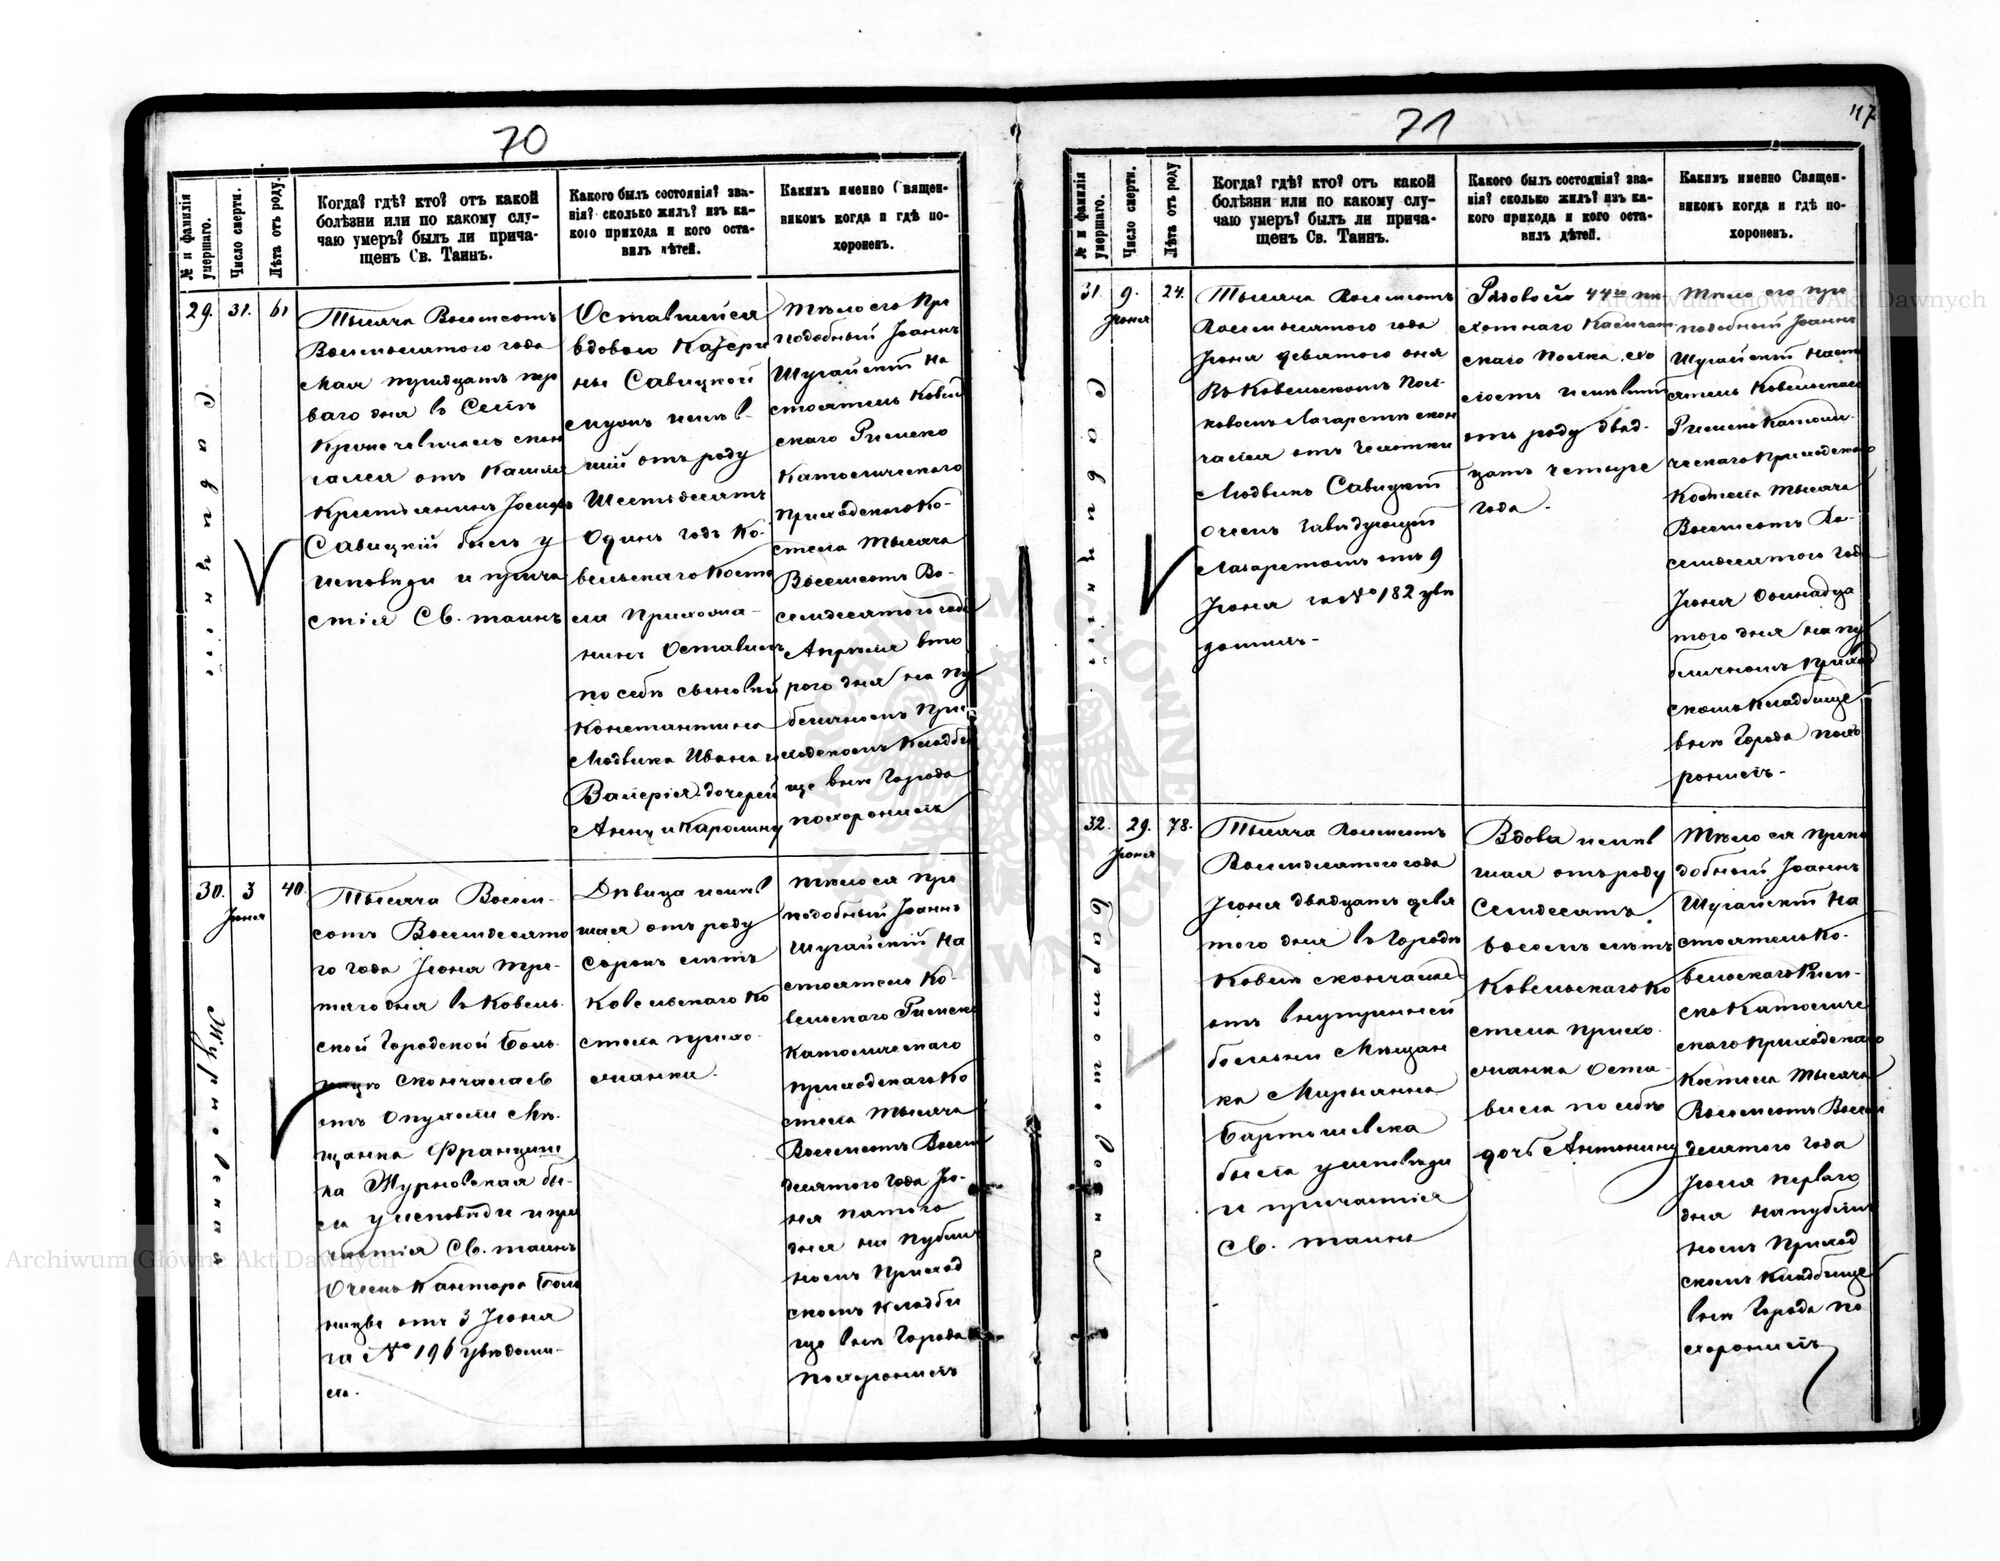 70
№ и фамилія умершаго.
Число смерти.
Лѣта отъ роду.
Когда? гдѣ? кто? отъ какой
болѣзни или по какому слу-
чаю умеръ? былъ ли прича-
щенъ Св. Таинъ.
Какого былъ состоянія? зва-
нія? сколько жилъ? изъ ка-
кого прихода и кого оста-
вилъ дѣтей.
Какимъ именно Священ-
никомъ когда и гдѣ по-
хороненъ.
29.
31.
61
Савицкій
Тысяча Восемсотъ
Восмьдесятого года
Мая тридцать пер
ваго дня въ Селѣ
скон
чался отъ Кашля
Крестьянинъ Іосифъ
Савицкій былъ у
исповѣди и прича
стія Св. таинъ
Оставшейся
вдовою Катери
ны Савицкой
мужъ имѣв
шій отъ роду
Шестьдесятъ
Одинъ годъ Ко-
вельского Косте
ла Прихожа-
нинъ Оставилъ
по себѣ сыновей
Константина
Людвика Ивана и
Валерія дочерей
Анну и Каролину
Тѣло его Пре
подобный Іоаннъ
Шугайскій На
стоятель Ковел
скаго Римско
Католического
Приходского Ко-
стела Тысяча
Восемсотъ Во-
семдесятого года
Апрѣля вто
рого дня на Пу
бличномъ При-
ходскомъ Кладби
ще внѣ Города
похоронилъ
30.
3
Іюня
40.
Журновская
Тысяча Восем-
сотъ Восемдесято
го года Іюня тре-
тяго дня въ Ковель-
ской Городской Боль-
ницѣ скончалась
отъ Опухоли Мѣ-
щанка Францишк
ка Журновская бы-
ла у исповѣди и при
частія Св. таинъ
О чемъ Контора Боль
ницы отъ 3 Іюня
за № 196 увѣдоми-
ла.
Дѣвица имѣв
шая отъ роду
сорокъ лѣтъ
Ковельского Ко
стела прихо-
жанка.
Тѣло ея Пре
подобный Іоаннъ
Шугайскій На
стоятель Ко-
вельского Римско
Католического
Приходского Ко
стела Тысяча
Восемсотъ Восем
десятого года Ію-
ня пятого
дня на Публич
номъ Приход
скомъ Кладби
ще внѣ Города
Похоронилъ
71
117
№ и фамилія умершаго.
Число смерти.
Лѣта отъ роду
Когда? гдѣ? кто? отъ какой
болѣзни или по какому слу-
чаю умеръ? былъ ли прича-
щенъ Св. Таинъ.
Какого былъ состоянія? зва-
нія? сколько жилъ? изъ ка-
кого прихода и кого оста-
вилъ дѣтей.
Какимъ именно Священ-
никомъ когда и гдѣ по-
хороненъ.
31.
9.
Іюня
24.
Савицкій
Тысяча Восемсотъ
Восемдесятого года
Іюня девятого дня
Въ Ковельскомъ Пол-
ковомъ Лазаретѣ скон
чался отъ Чехотки
Людвикъ Савицкій
О чемъ Завѣдующій
Лазаретомъ отъ 9
Іюня за № 182 увѣ
домилъ-
Рядовой 44го пѣ
хотнаго Камчат
скаго Полка, хо
лостъ имѣвшій
отъ роду двад-
цать четыре
года.
Тѣло его пре
подобный Іоаннъ
Шугайскій наст
оятель Ковельскаго
Римско Католи-
ческаго Приходскаго
Костела Тысяча
Восемсотъ Во-
семдесятого года
Іюня одинадца
того дня на пу
бличномъ приход
скомъ Кладбище
внѣ Города похо
ронилъ-
32.
29.
Іюня
78.
Бартошевская
Тысяча Восемсотъ
Восемдесятого года
Іюня двадцать девя
того дня въ Городѣ
Ковелѣ скончалась
отъ внутринней
болезни Мѣщан
ка Марьянна
Бартошевска
была у исповѣди
и причастія
Св. таинъ
Вдова имѣв
шая отъ роду
Семдесятъ
восемъ лѣтъ
Ковельского Ко
стела прихо
жанка Оста-
вила по себѣ
дочь Антонину
Тѣло ея препо
добный Іоаннъ
Шугайскій На
стоятель Ко-
вельского Рим-
ско Католиче
скаго Приходскаго
Костела Тысяча
Восемсотъ Восем
десятого года
Іюля перваго
дня на публич
номъ Приход
скомъ Кладбище
внѣ Города по
хоронилъ
Archiwum Główne Akt Dawnych
Archiwum Główne Akt Dawnych
ARCHIWUM GŁÓWNE AKT DAWNYCH